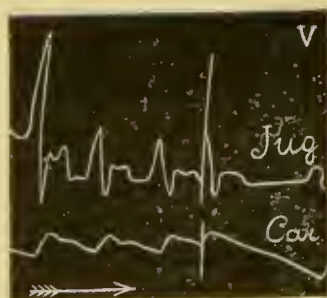 V
Jug
Car